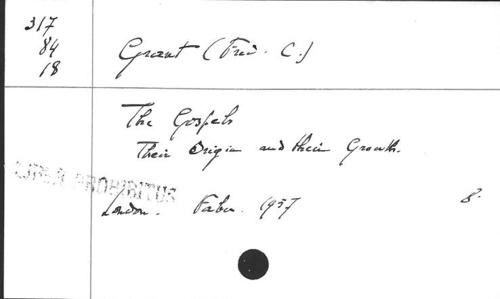 317
84
18
Grant (Fred. C.)
The Gospels
Their Origin and their Growth.
LIBER PROHIBITUS
London. Faber. 1957
8.